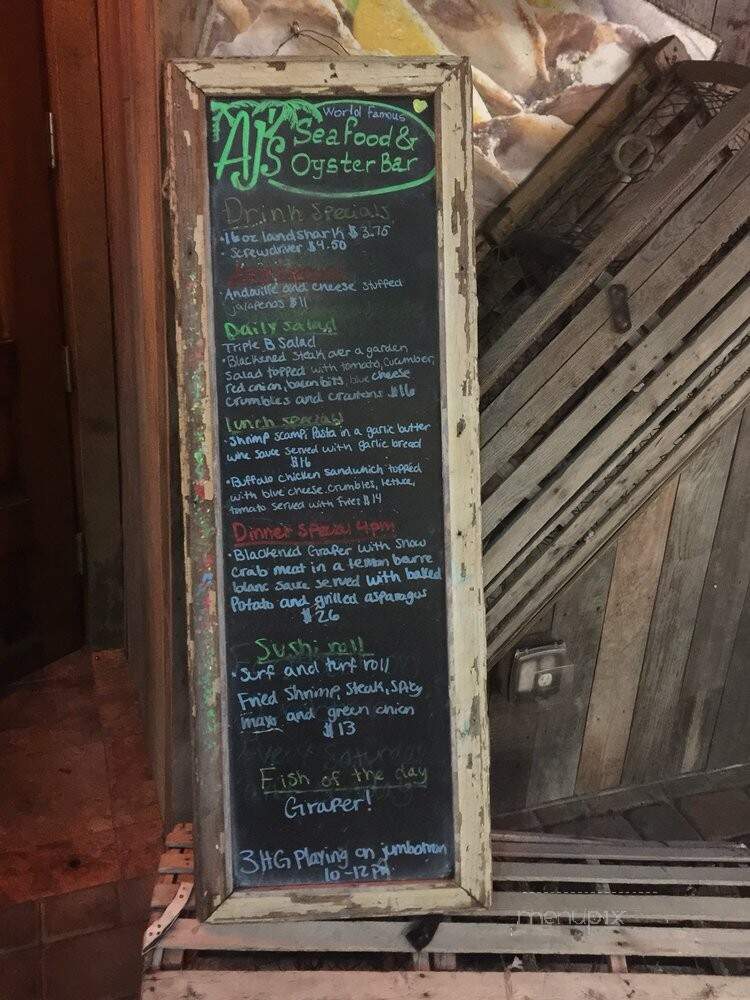 World Famous
AJ's
Seafood &
Oyster Bar
Drink Specials
• 16 oz landshark $3.75
- Screwdriver $4.50
Andouille and cheese stuffed
jalapenos $11
Daily salad
Triple B Salad
• Blackened steak over a garden
Salad topped with tomato, Cucumber,
red onion, bacon bits, blue cheese
crumbles and croutons $16
lunch special
• Shrimp scampi Pasta in a garlic butter
wine sauce served with garlic bread
$16
• Buffalo chicken sandwhich topped
with blue cheese crumbles, lettuce,
tomato served with Fries $14
Dinner Special 4pm
• Blackened Groper with Snow
Crab meat in a lemon beurre
blanc sauce served with baked
Potato and grilled asparagus
$26
Sushi roll
• Surf and turf roll
Fried Shrimp, Steak, Spicy
mayo and green onion
$13
Fish of the day
Groper!
3HG Playing on jumbotron
10-12pm
menupix